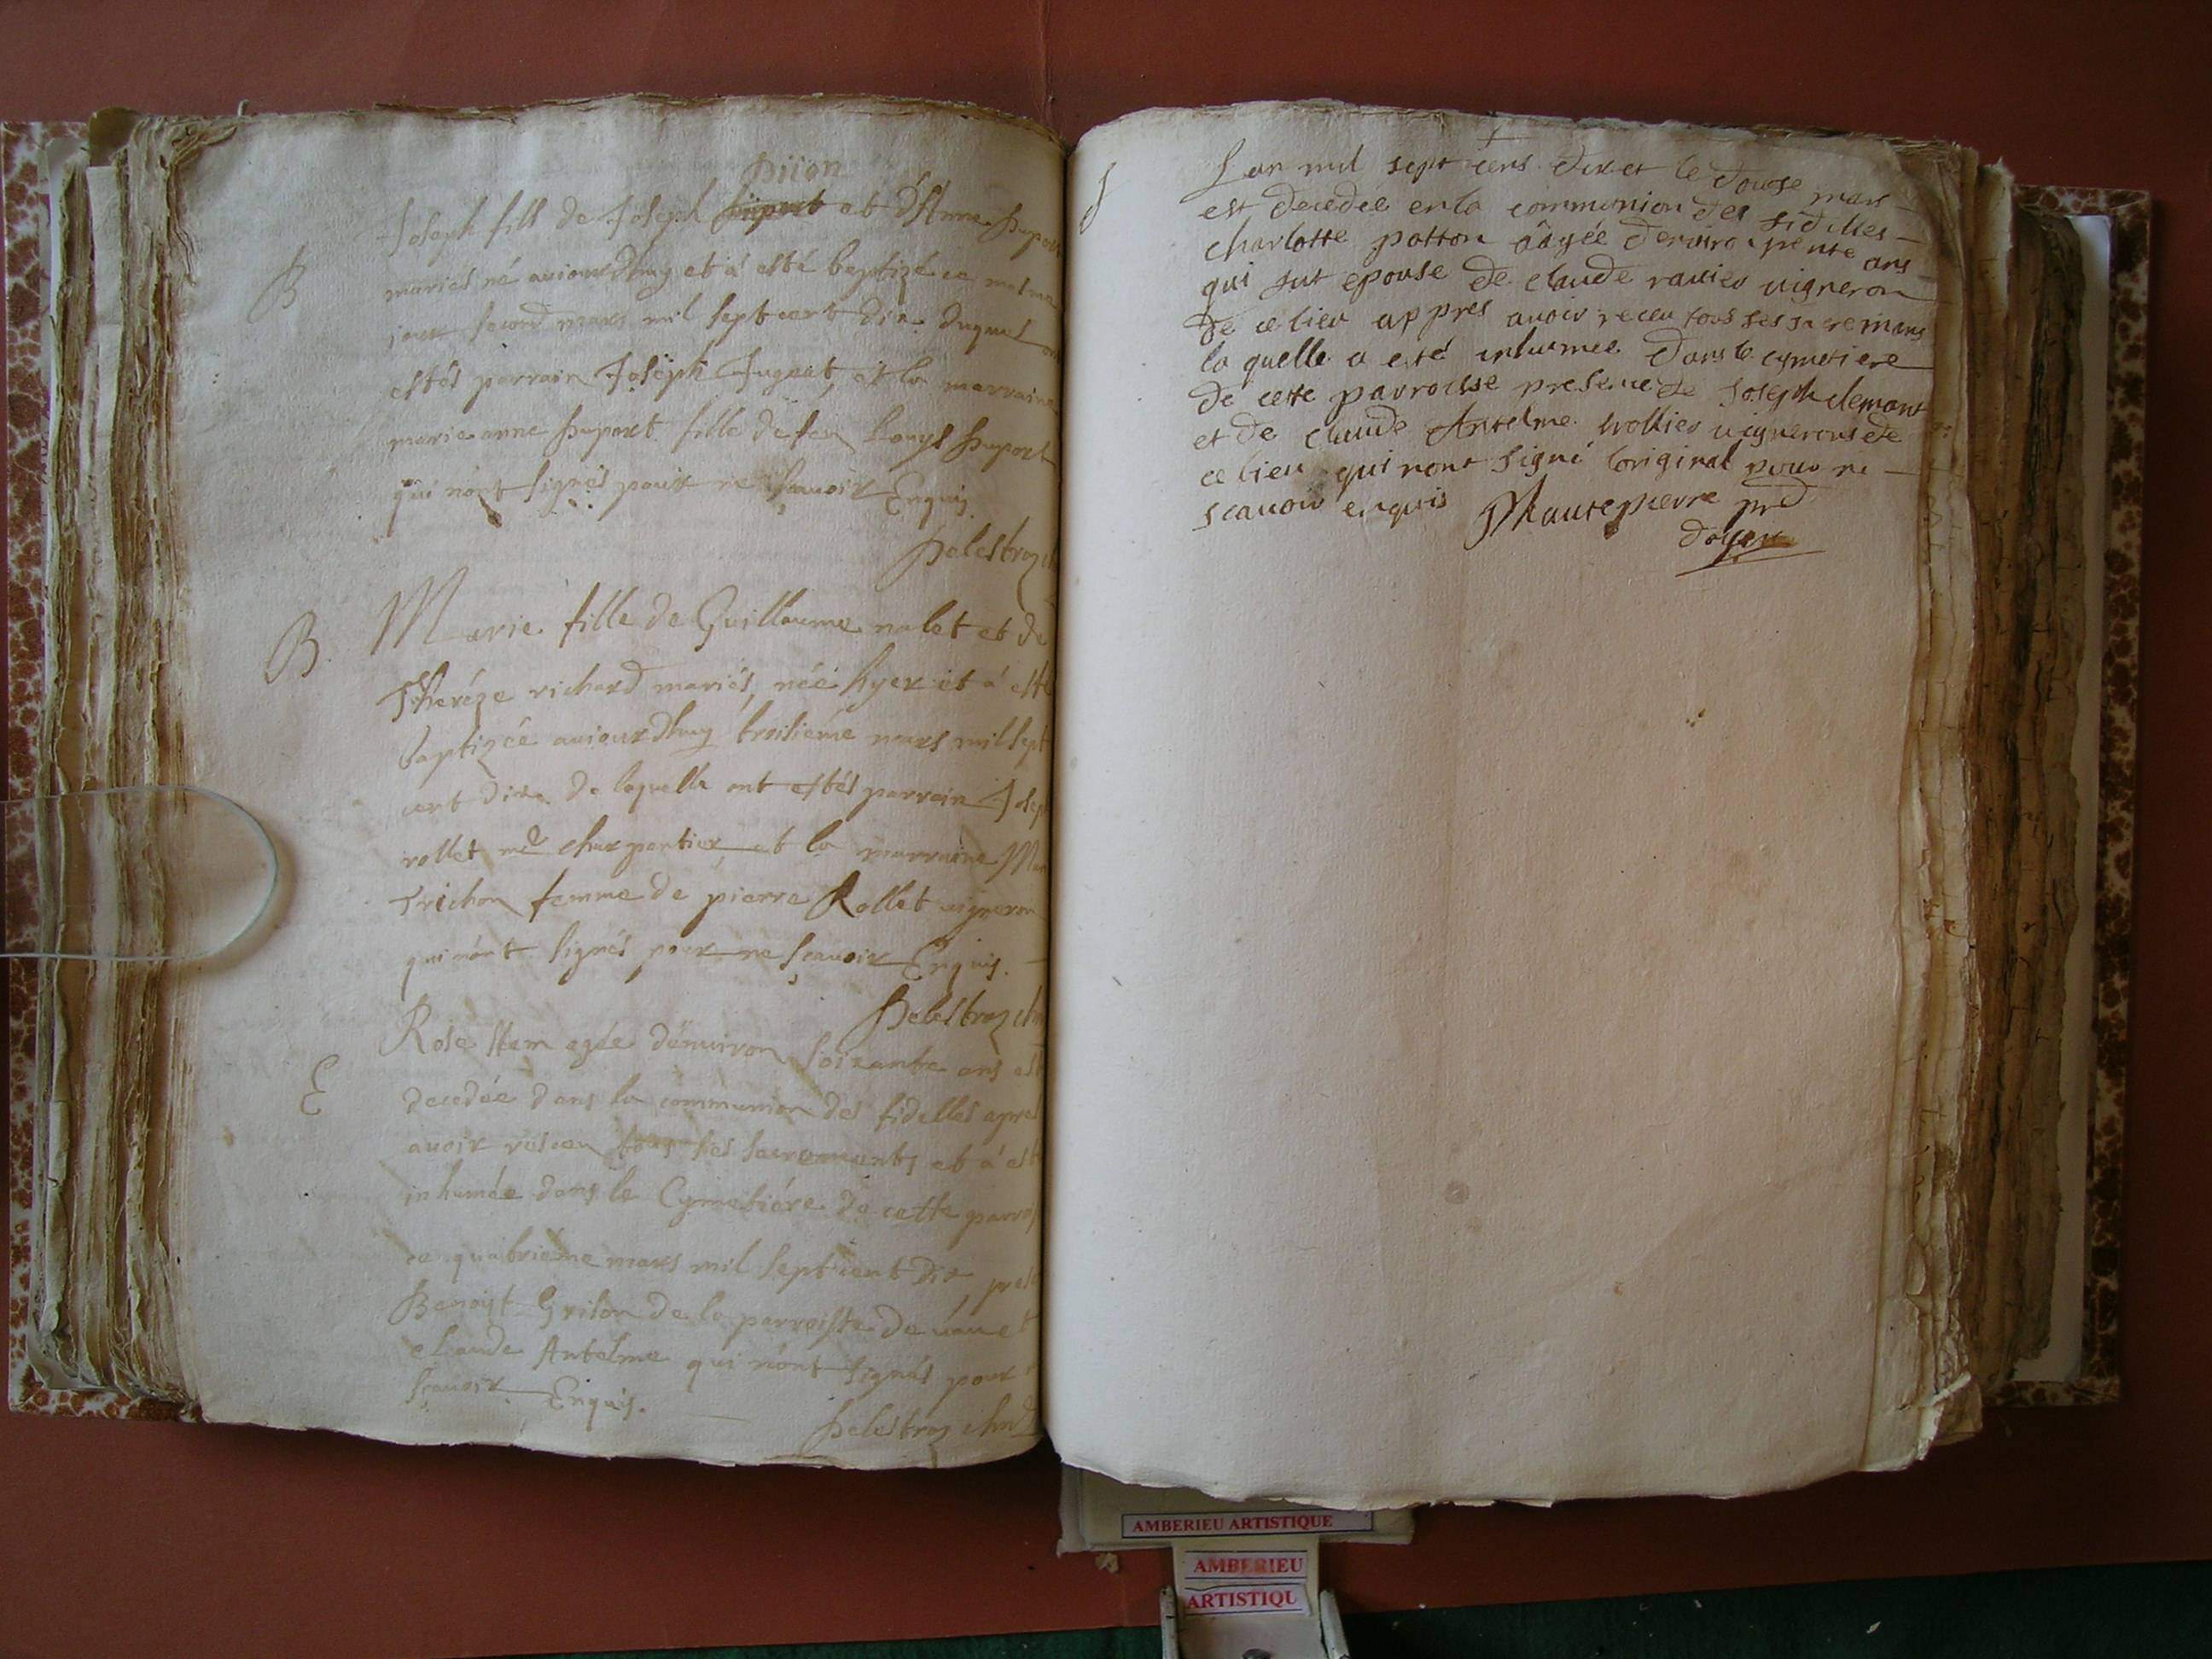 piion
Joseph fils de Joseph Duport et d'Anne Dupor
B
mariés né auiourdhuy et á esté baptizé ce mesme
jour second mars mil sept cent dix. duquel ont
estés parrain Joseph Jugnet, et la marraine
marie anne Duport fille de feu Louys Duport
qui n'ont signés pour ne scauoir Enquis.
Delestroz
B. Marie fille de Guillaume nalet et de
Theréze richard mariés, née hyer et á esté
baptizée auiourdhuy troisiéme mars mil sept
cent dix. de laquelle ont estés parrain Josep
rollet md charpentier et la marraine Mar
Trichon femme de pierre Rollet uigneron
qui n'ont signés pour ne scauoir Enquis.
Delestroz
Rose agée d'enuiron soixante ans est
E
decedée dans la communion des fidelles apres
auoir resceu tous ses sacrements et á est
inhumée dans le Cymetiére de cette parroi
ce quatriéme mars mil sept cent dix, prest
Benoyt Grilon de la parroisse de uaux et
claude Antelme qui n'ont signés pour
scauoir Enquis.
Delestroz
Lan mil sept cens dix et le douse mars
est decedée en la communion des fidelles
charlotte potton âagée denuiron trente ans
qui fut epouse de claude rauier uigneron
de ce lieu appres auoir receu tous ses sacremans
la quelle a esté inhumée dans le cymetiere
de cette parroisse presence de Joseph clemant
et de claude Antelme trollier uignerons de
ce lieu qui nont signé loriginal pour ne
scauoir enquis Mautepierre
doyen
AMBERIEU ARTISTIQUE
AMBERIEU
ARTISTIQU